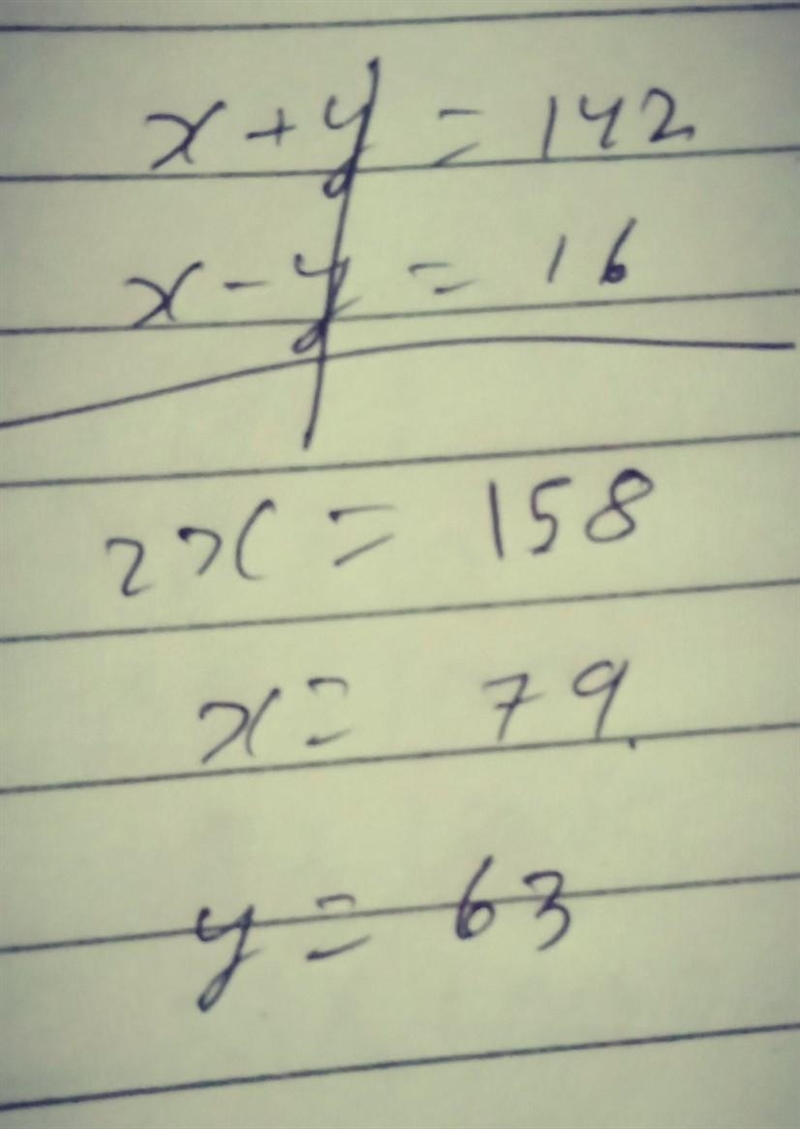 x + y = 142
x - y = 16
2x = 158
x = 79.
y = 63